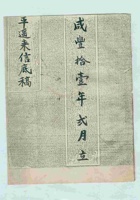 咸豐拾壹年弍月立
平遥來信底稿